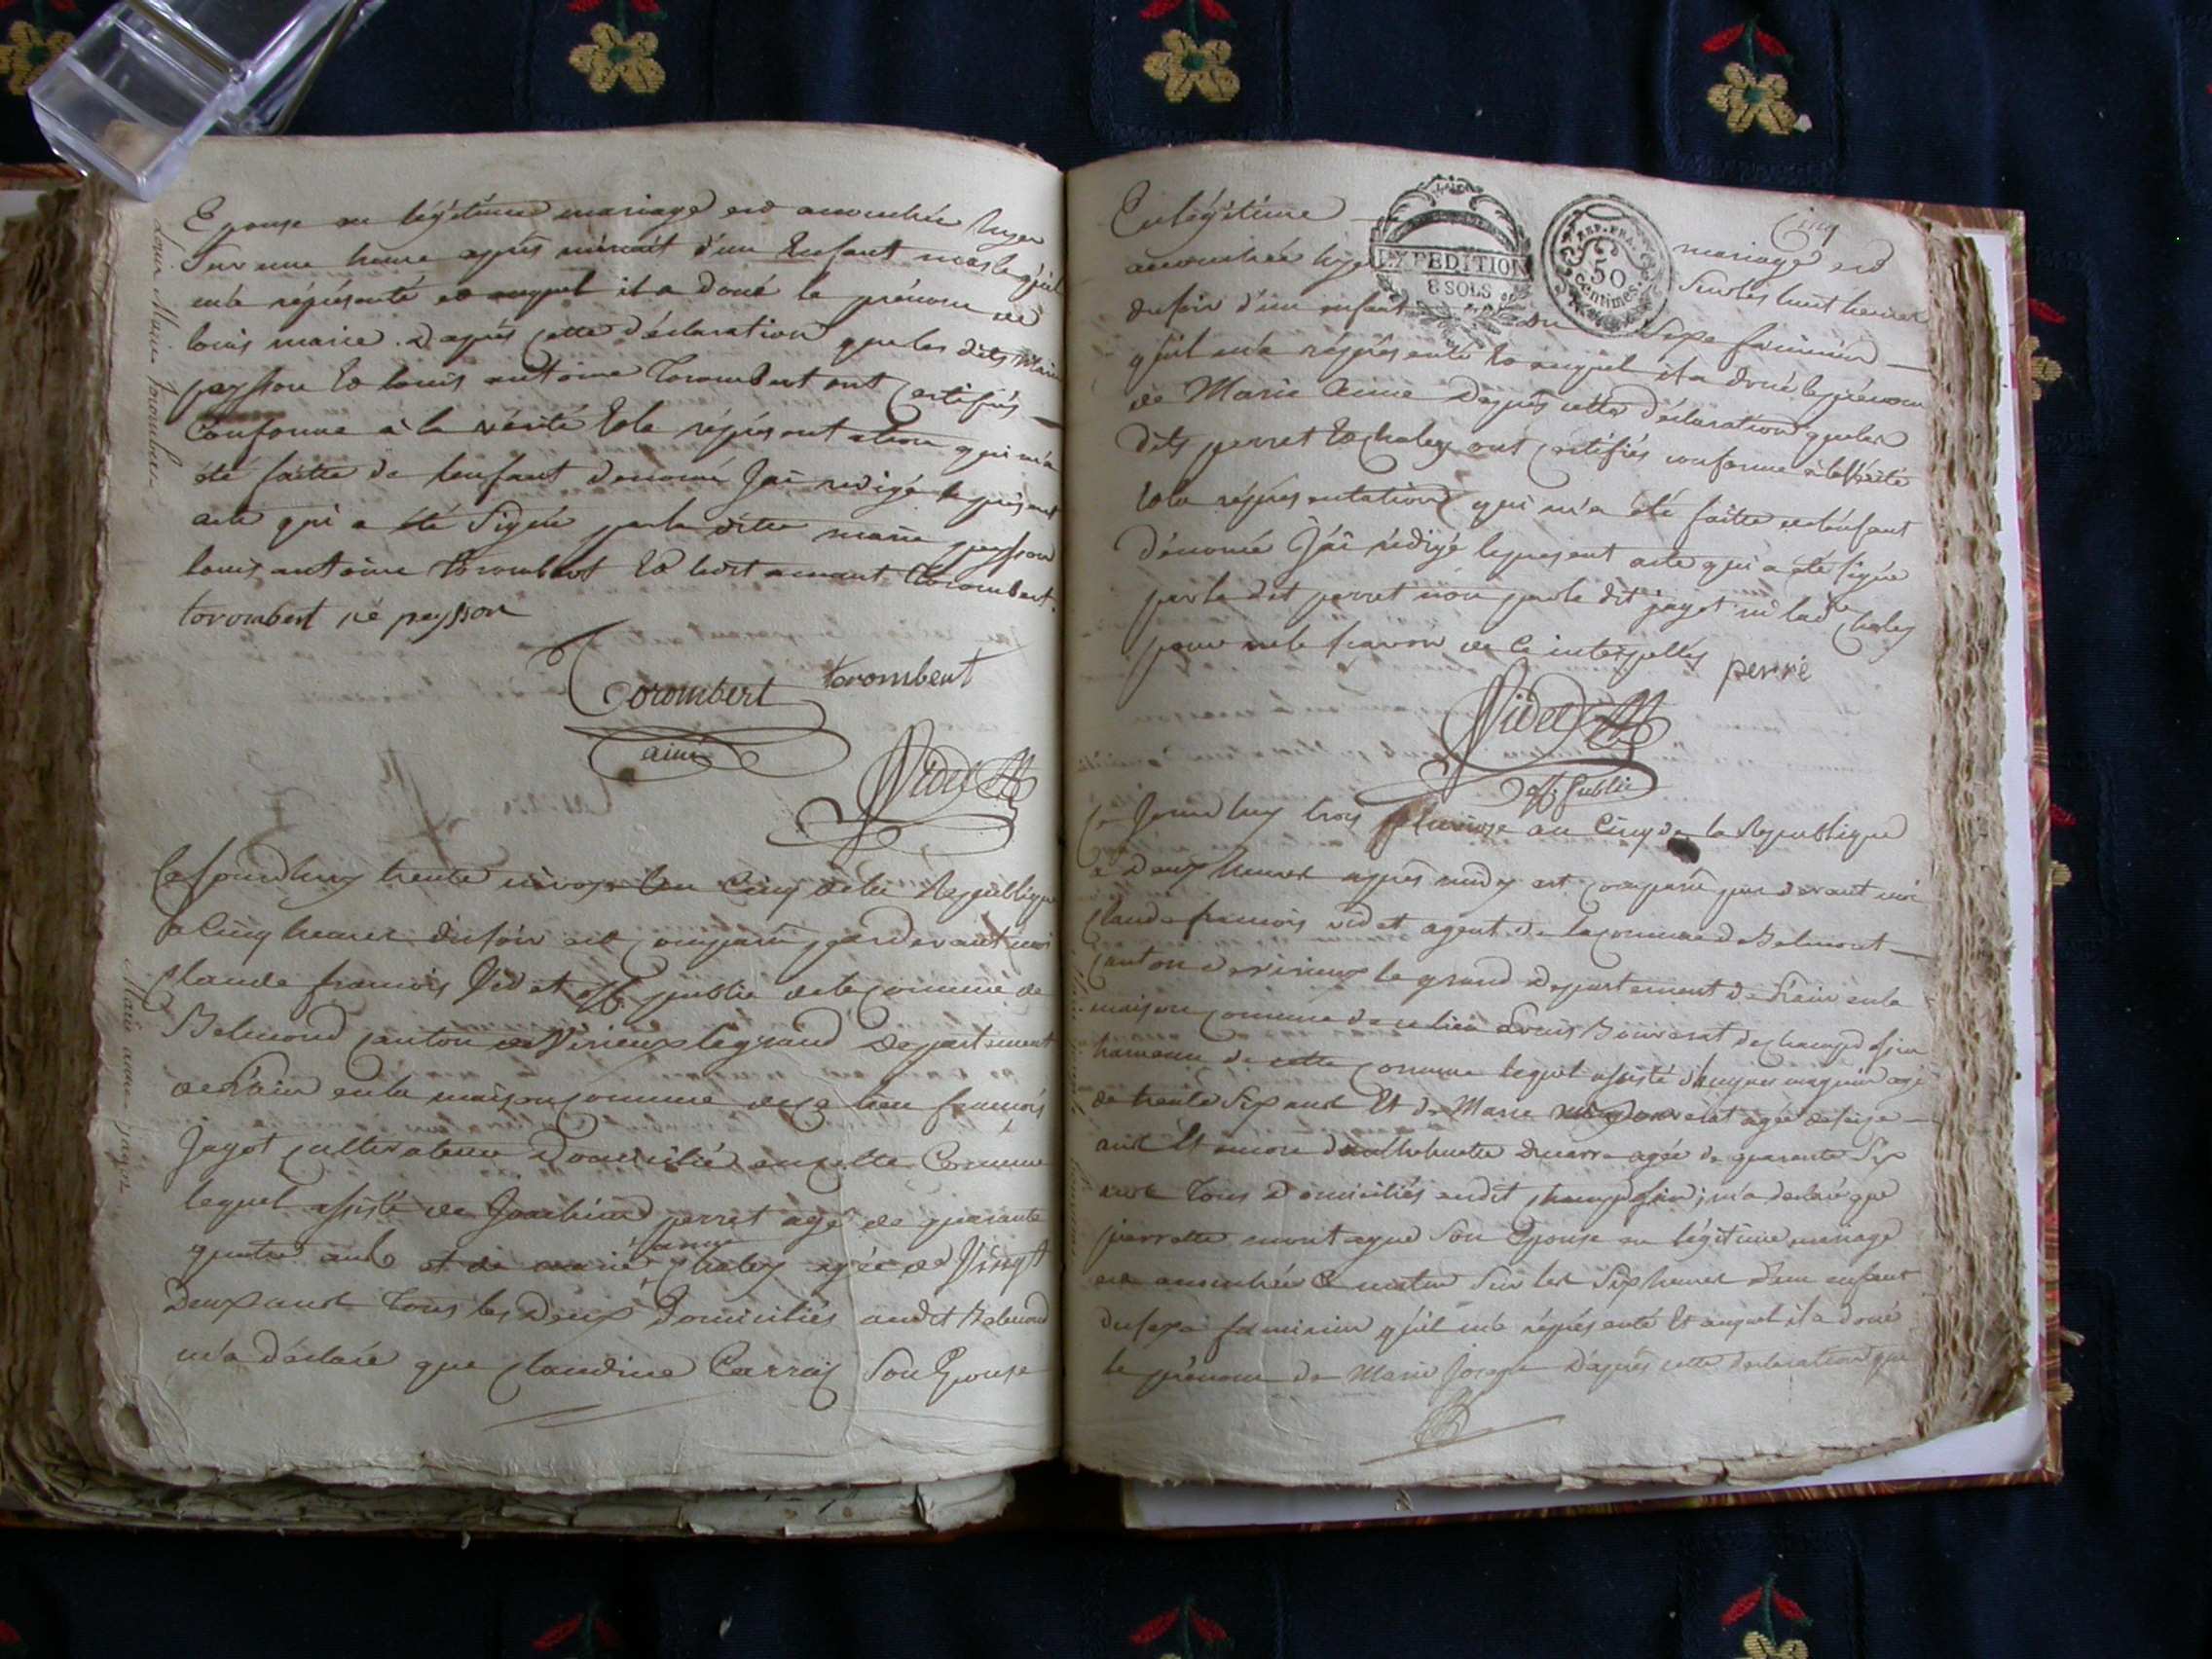 Epouse en légitime mariage est acouchée hyer
Sur une heure après minuit d'un Enfant masle qu'il
m'a réprésenté et auquel il a doné le prénom de
louis marie. D'après cette déclaration que les dits Marie
peysson et louis antoine torombert ont Certifiés
Conforme à la vérité et la réprésentation qui m'a
été faitte de lenfant denomé Jai redigé le présent
acte qui a été Signée par la ditte marie peysson
louis antoine torombert et torombert.
torombert né peysson
Torombert torombert
ainé
Videt
Louis Marie Torombert
Ce Jourdhuy trente nivose l'an Cinq de la République
a Cinq heures du soir est comparu pardevant moi
Claude francois Videt off. public de la comune de
Belmond canton de Virieux le grand Departement
de l'ain en la maison comune de ce lieu francois
Jagot cultivateur Domicilié en cette Comune
lequel assisté de Joachim perret agé de quarante
quatre ans et de marie anne chaley agée de Vingt
Deux ans tous les Deux Domiciliés audit Belmond
m'a déclaré que claudine Carraz Son Epouse
Marie anne Jagot
Cinq
En légitime mariage est
EXPEDITION
8 SOLS
REP. FRA.
50
centimes.
acouchée hyer Sur les huit heures
du soir d'un enfant du Sexe feminin
qu'il m'a réprésenté et auquel il a doné le prénom
de Marie Anne D'après cette déclaration que les
Dits perret et chaley ont certifiés conforme à la Vérité
et la réprésentation qui m'a été faitte de lenfant
dénomé J'ai rédigé le present acte qui a été signé
par le dit perret non par le dit jagot ni lad. chaley
pour ne le scavoir de ce interpellés perré
Videt
off. public
Ce Jourdhuy trois pluviose an Cinq de la Republique
à Deux heures après midy est comparu par devant moi
Claude francois videt agent de la comune de Belmont
canton de virieux le grand Departement de l'ain en la
maison comune de ce lieu Louis Bouverat de champdossin
hameau de cette comune lequel assisté magnin agé
de trente Six ans Et de Marie agée de seize
ans Et encore agée de quarante Six
ans tous Domiciliés audit m'a declaré que
pierrette montagne Son Epouse en légitime mariage
est acouchée Ce matin Sur les Six heures d'un enfant
du sexe feminin qu'il m'a réprésenté Et auquel il a doné
le prénom de Marie Joseph D'après cette declaration que